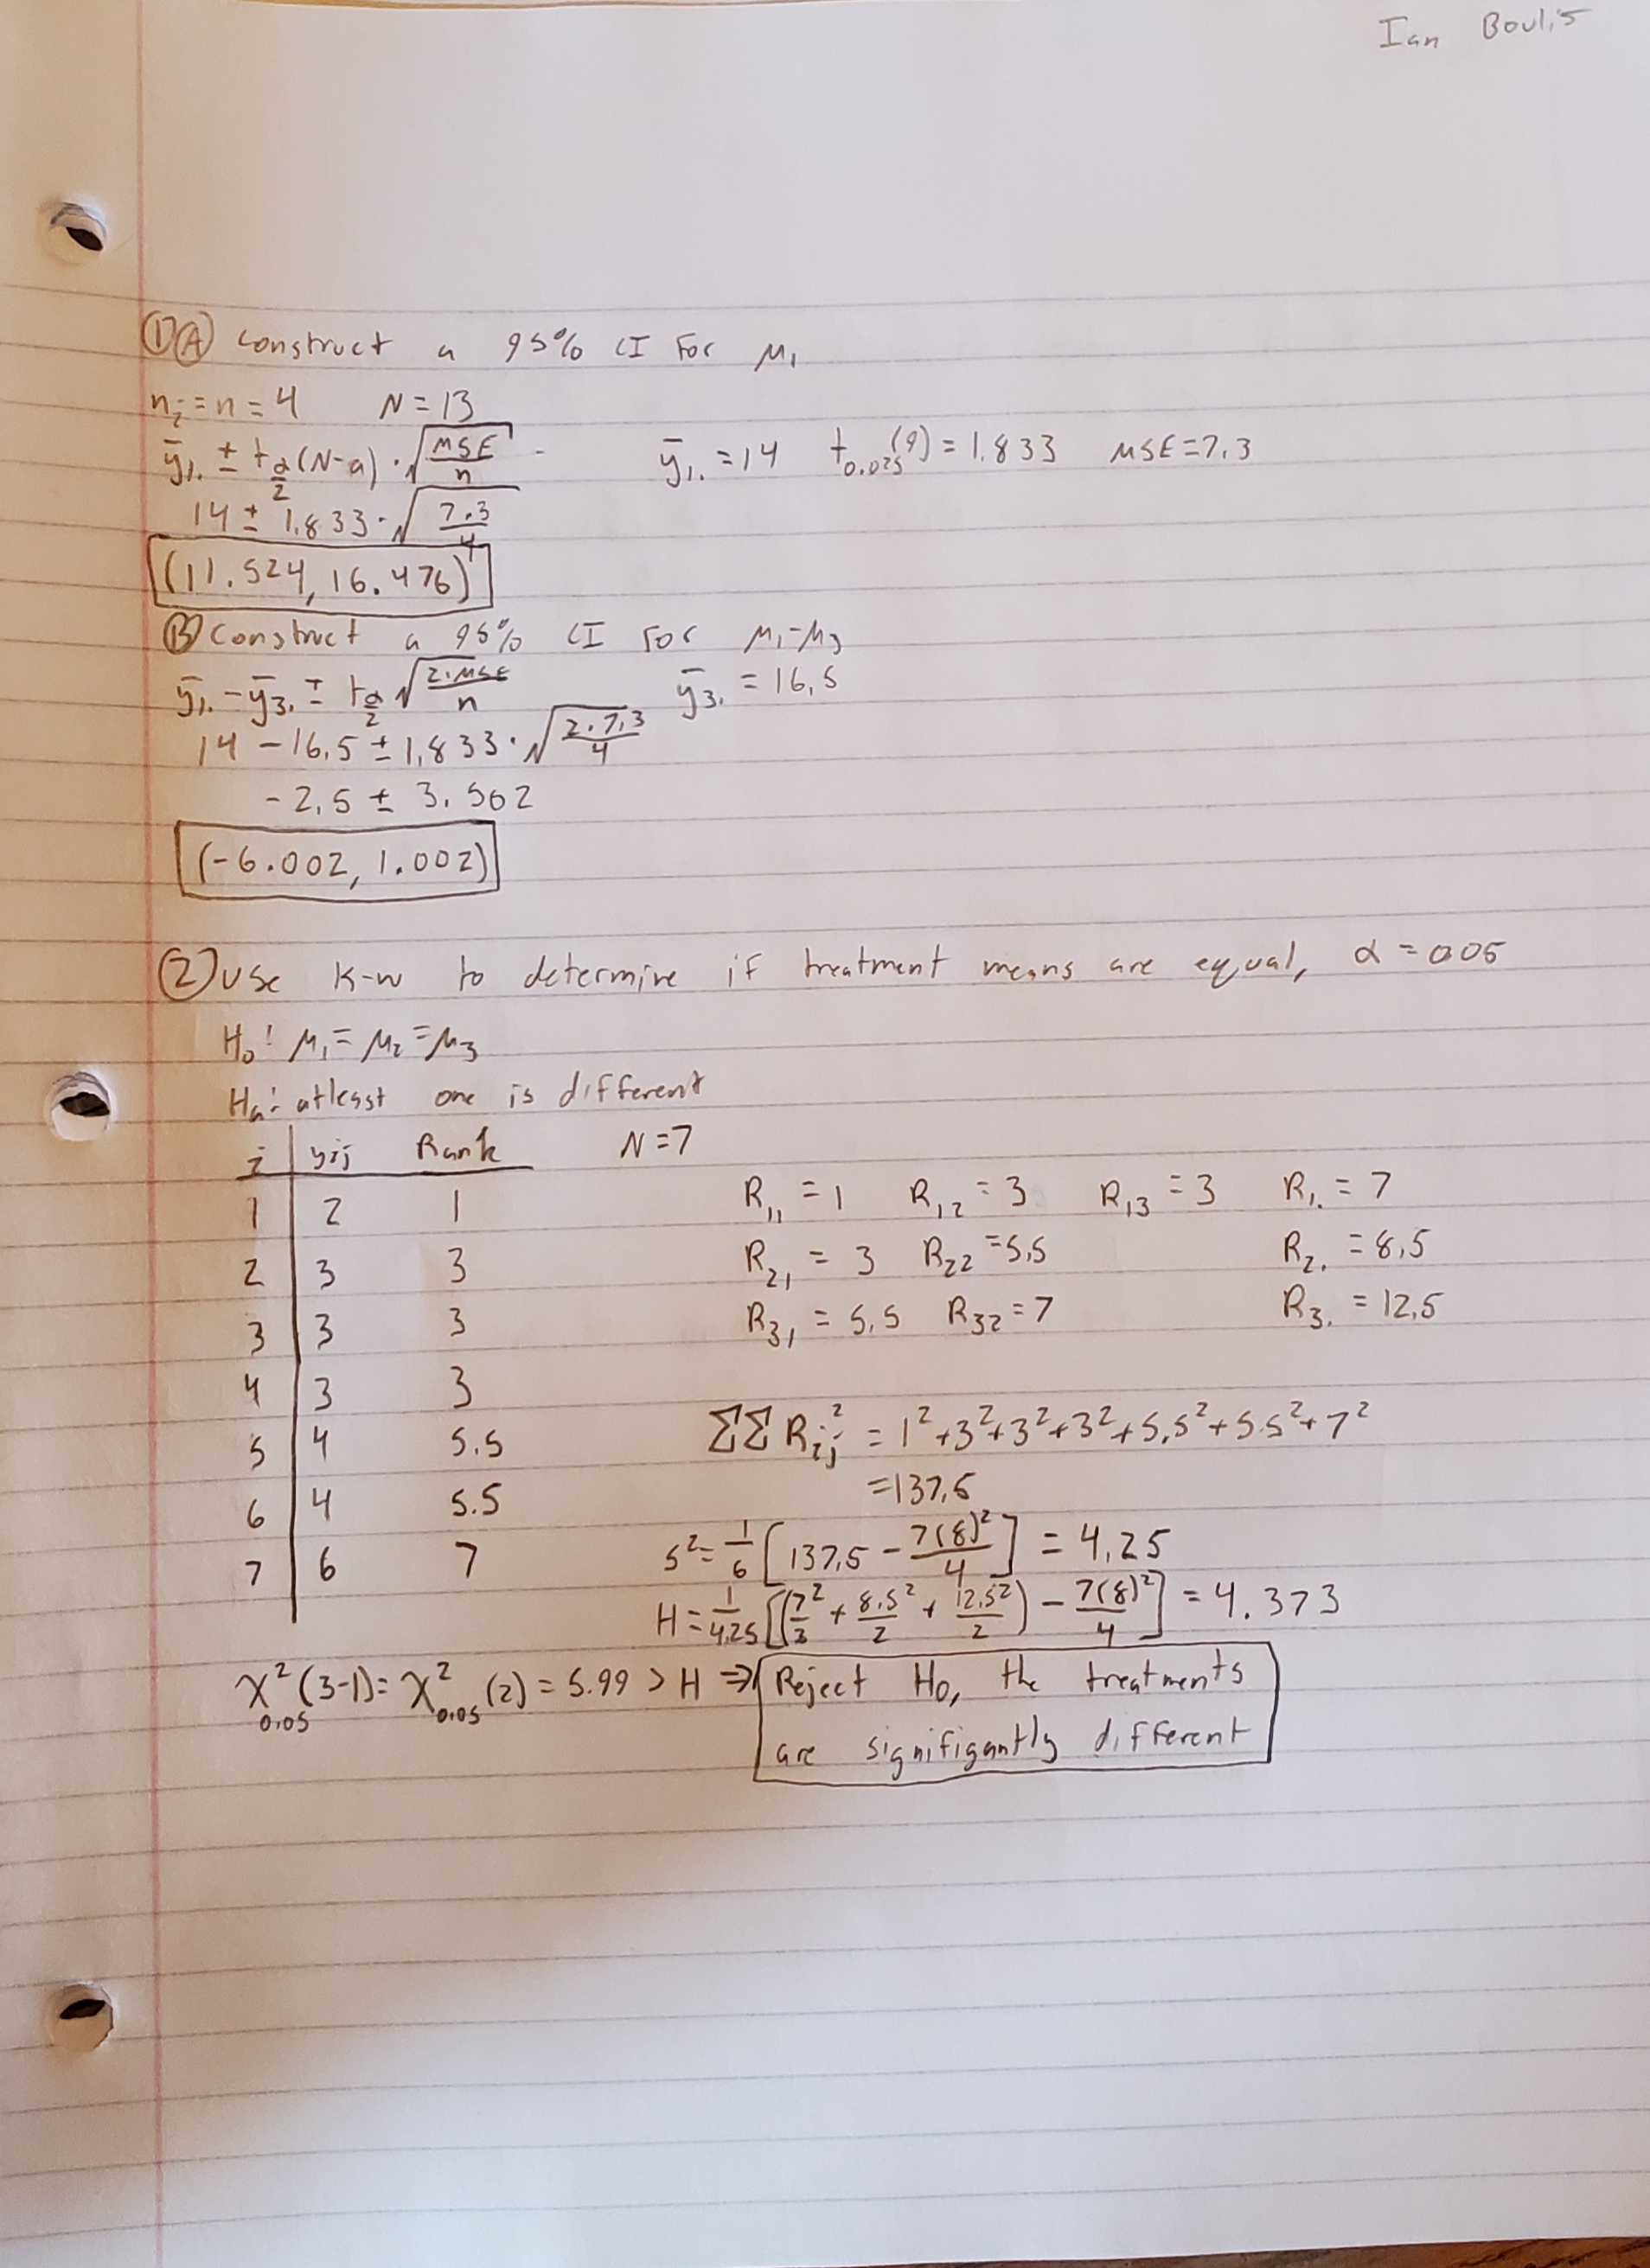 Ian Boulis
①Ⓐ construct a 95% CI For μ₁
nᵢ = n = 4 N = 13
ȳ₁. ± t_{α/2}(N-a) · √(MSE/n) ȳ₁. = 14 t_{0.025}(9) = 1.833 MSE = 7.3
14 ± 1.833 · √(7.3/4)
(11.524, 16.476)
Ⓑ Construct a 95% CI For μ₁-μ₃
ȳ₁. - ȳ₃. ± t_{α/2} √(2·MSE/n) ȳ₃. = 16.5
14 - 16.5 ± 1.833 · √(2·7.3/4)
-2.5 ± 3.502
(-6.002, 1.002)
② Use K-W to determine if treatment means are equal, α = 0.05
H₀: μ₁ = μ₂ = μ₃
Hₐ: atleast one is different
i yᵢⱼ Rank N = 7
1 2 1 R₁₁ = 1 R₁₂ = 3 R₁₃ = 3 R₁. = 7
2 3 3 R₂₁ = 3 R₂₂ = 5.5 R₂. = 8.5
3 3 3 R₃₁ = 5.5 R₃₂ = 7 R₃. = 12.5
4 3 3
5 4 5.5 ΣΣ Rᵢⱼ² = 1² + 3² + 3² + 3² + 5.5² + 5.5² + 7²
= 137.5
6 4 5.5
7 6 7 s² = 1/6 [137.5 - 7(8)²/4] = 4.25
H = 1/4.25 [(7²/3 + 8.5²/2 + 12.5²/2) - 7(8)²/4] = 4.373
χ²_{0.05}(3-1) = χ²_{0.05}(2) = 5.99 > H ⇒ Reject H₀, the treatments
are signifigantly different